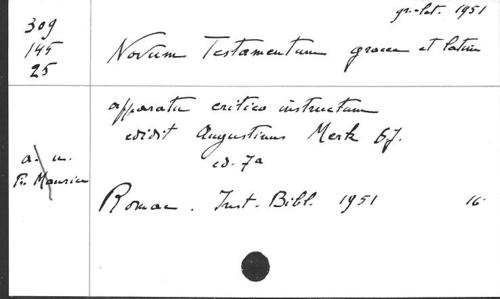 gr.-lat. 1951
309
145
25
Novum Testamentum graece et latine
apparatu critico instructum
edidit Augustinus Merk S.J.
ed. 7a
a. u.
Fr. Maurice
Romae. Inst. Bibl. 1951 16°